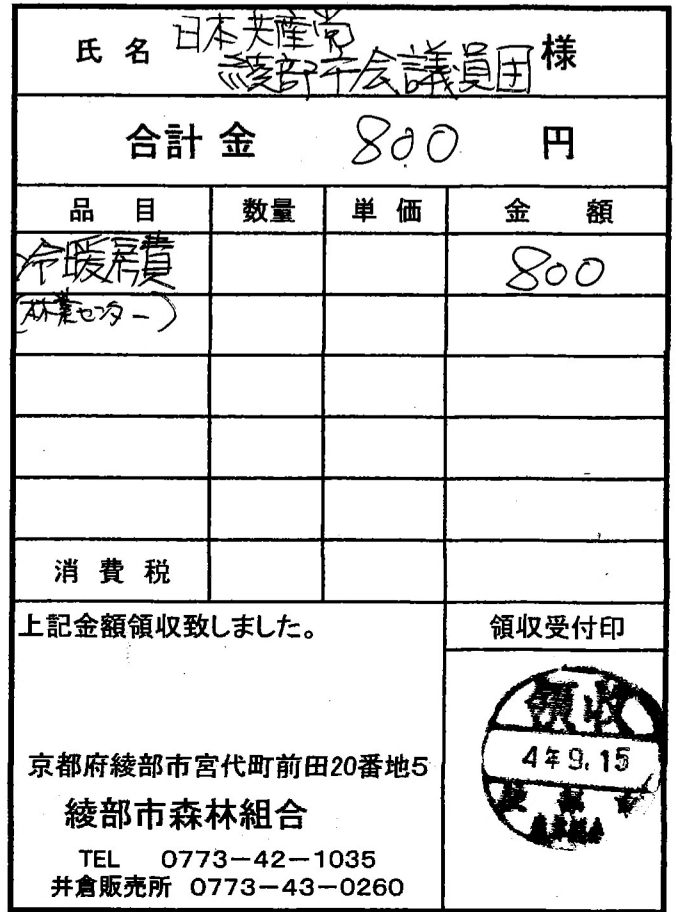 氏名 日本共産党 綾部市会議員団 様
合計金 800 円
品目 数量 単価 金額
冷暖房費 800
(林業センター)
消費税
上記金額領収致しました。
領収受付印
領収
4年9.15
京都府綾部市宮代町前田20番地5
綾部市森林組合
TEL 0773-42-1035
井倉販売所 0773-43-0260